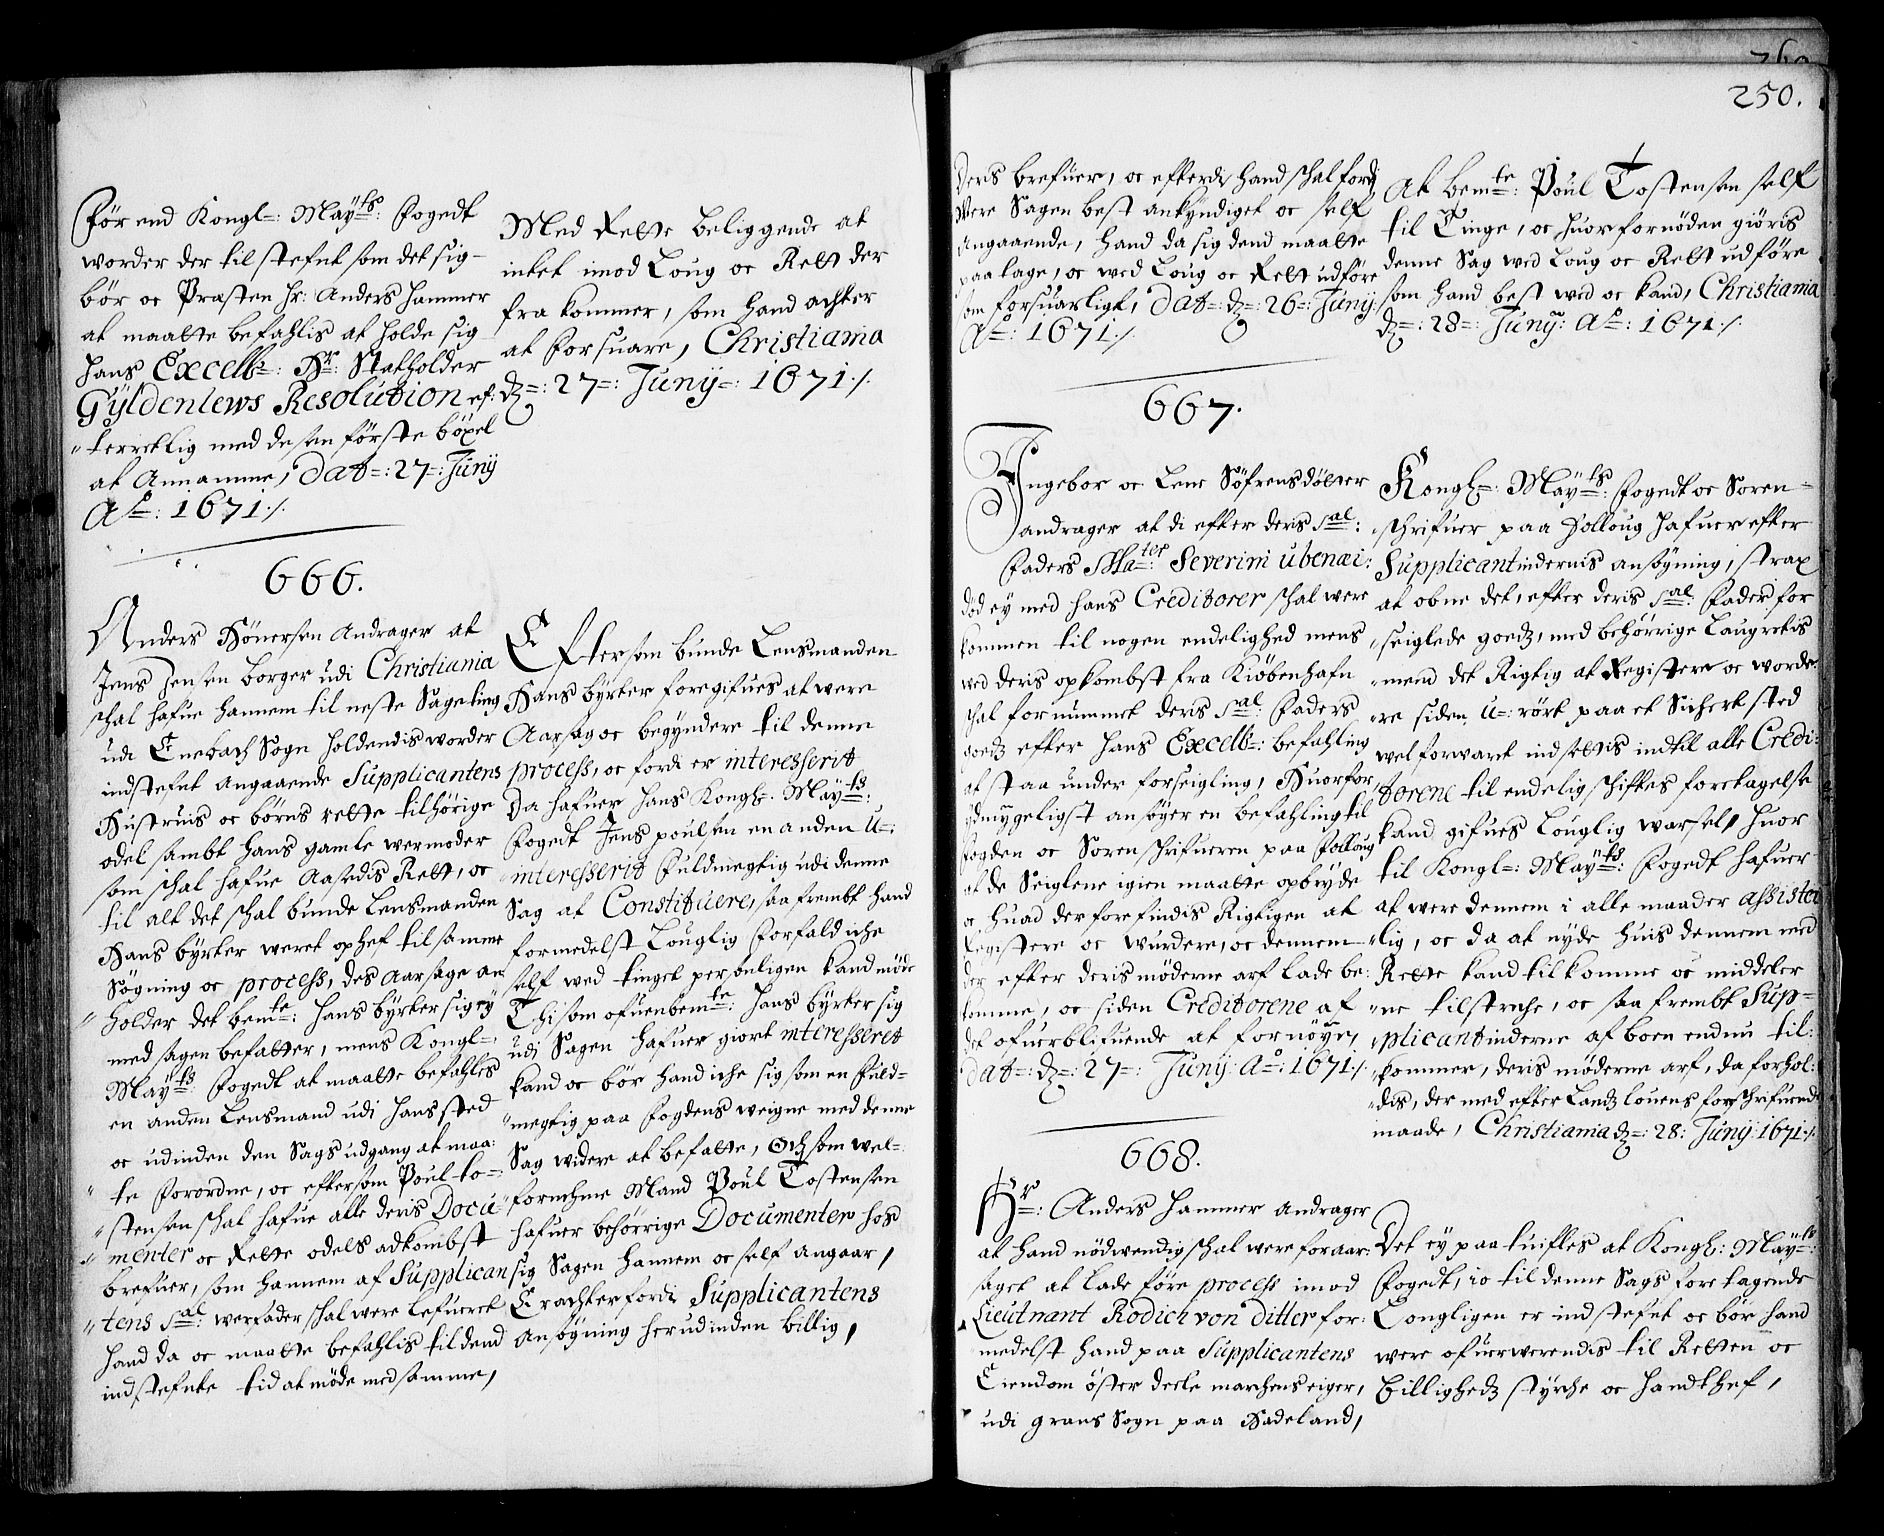 Før end Kongl: Mayts: Fogedt
worder der til stefnt som det sig
bør oc Præsten Hr: Anders Hammer
at maatte befahlis at holde sig
Hans Excell: Hr: Statholder
Gyldenlews Resolution ef:
terretlig med desen første böxel
at Annamme, Dat: 27: Juny
Ao: 1671 ./.
Med Rette beliggende at
intet imod Loug oc Rett der
fra kommer, som hand achter
at forsuare, Christiania
dz: 27: Junij: 1671 ./.
666.
Anders Hönersen Andrager at
Jens Jensen borger udi Christiania
schal hafue hannem til neste Sageting
udi Enebach Sogn holdendis worder
indstefnt Angaaende Supplicantens
Hustruis oc börns rette tilhörige
odel sambt hans gamle wermoder
som schal hafue Aasedis Rett, oc
til alt det schal bunde Lensmanden
Hans byrker weret ophef til samme
Søgning oc process, des Aarsage an
holder det bemte: Hans byrker sig ey
med sagen befatter, mens Kongl:
Mayts: Fogedt at maatte befahles
en anden Lensmand udi hans sted
oc udinden den Sags udgang at maa:
te forordne, oc eftersom Poul to=
stensen schal hafue alle deris Docu
menter oc Rette odels adkombst
brefuer, som hannem af Supplican
tens Sal: werfader schal were lefueret
hand da oc maatte befahlis til dend
indstefnte tid at møde med samme,
Eftersom bunde Lensmanden
Hans byrker foregifues at were
Aarsag oc begyndere til denne
process, oc fordi er interesserit
Da hafuer Hans Kongl: Mayts:
Fogedt Jens poulsen en anden U=
interesserit fuldmegtig udi denne
Sag at Constituere, saa frembt hand
formedelst Louglig forfald iche
self wed tinget personligen kand møde
Thi som ofuenbemte: Hans byrker sig
udi Sagen hafuer giort interesseret
kand oc bör hand iche sig som en fuld=
megtig paa Fogdens weigne med denne
Sag widere at befatte, Och som wel=
fornehme Mand Poul Tostensen
hafuer behörrige Documenter hos
sig Sagen hannem oc self angaar,
Erachter fordi Supplicantens
Ansøgning herudinden billig,
250.
Deris brefuer, oc efterdi hand schal fordj
Were Sagen best ankyndiget oc self
Angaaende, hand da sig dend maatte
paa tage, oc wed Loug oc Rett udføre
som forsuarligt, Dat: dz: 26: Juny
Ao: 1671 ./.
At bemte: Poul Tostensen self
til Tinge, oc huor fornöden giöris
denne Sag wed Loug oc Rett udføre
som hand best wed oc kand, Christiania
dz: 28: Juny: Ao: 1671 ./.
667.
Ingebor oc Lene Söfrensdötter
andrager at di efter deris Sal:
Faders Mater: Severini ubenæi:
död ey med hans Creditorer schal were
kommen til nogen endelighed mens
wed deris opkombst fra Kiöbenhafn
schal fornummet deris Sal: Faders
goedz efter Hans Excell: befahling
at staa under forseigling, Huorfor
ydmygeligst ansöger en befahling til
Fogden oc Sorenschrifueren paa Folloug
at de Seiglene igien maatte opbryde
oc huad der forefindis Rigtigen at
Registere oc wurdere, oc dennem
der efter deris möderne arf lade be:
komme, oc siden Creditorene af
det ofuerblifuende at fornöye,
dat: dz: 27: Juny: Ao: 1671 ./.
Kongl: Mayts: Fogedt oc Soren=
schrifuer paa Folloug hafuer efter
Supplicantindernis ansögning, strax
at obne det, efter deris Sal: Fader for
seiglede goedz, med behörrige Laugrettis
mend det Rigtig at Registere oc worde
re siden, U=rört paa et Sichert sted
wel forwart indsettis indtil alle Credi:
torene til endelig schiftes foretagelse
kand gifues Louglig warsel, huor
til Kongl: Mayts: Fogedt hafuer
at were dennem i alle maader Assister
lig, oc da at nyde huis dennem med
Rette kand tilkomme oc middeler
ne tilstreche, oc saa frembt Supp=
plicantinderne af boen endnu til:
kommer, deris möderne arf, da forhol:
dis, der med efter Landz louens forschrifuende
maade, Christiania dz: 28: Juny: 1671 ./.
668.
Hr: Anders Hammer Andrager
at hand nödwendig schal were foraar:
saget at lade före process imod
Lieutnant Rodich von Ditler for:
medelst hand paa Supplicantens
Eiendom öster deele marchens eiger,
udi grans Sogn paa Hadeland,
Det ey paa tuifles at Kongl: Mayts:
Fogedt, io til denne Sags foretagende
Lougligen er indstefnt oc bör hand
were ofuerwerendis til Retten oc
Billighedz styrche oc handthef,